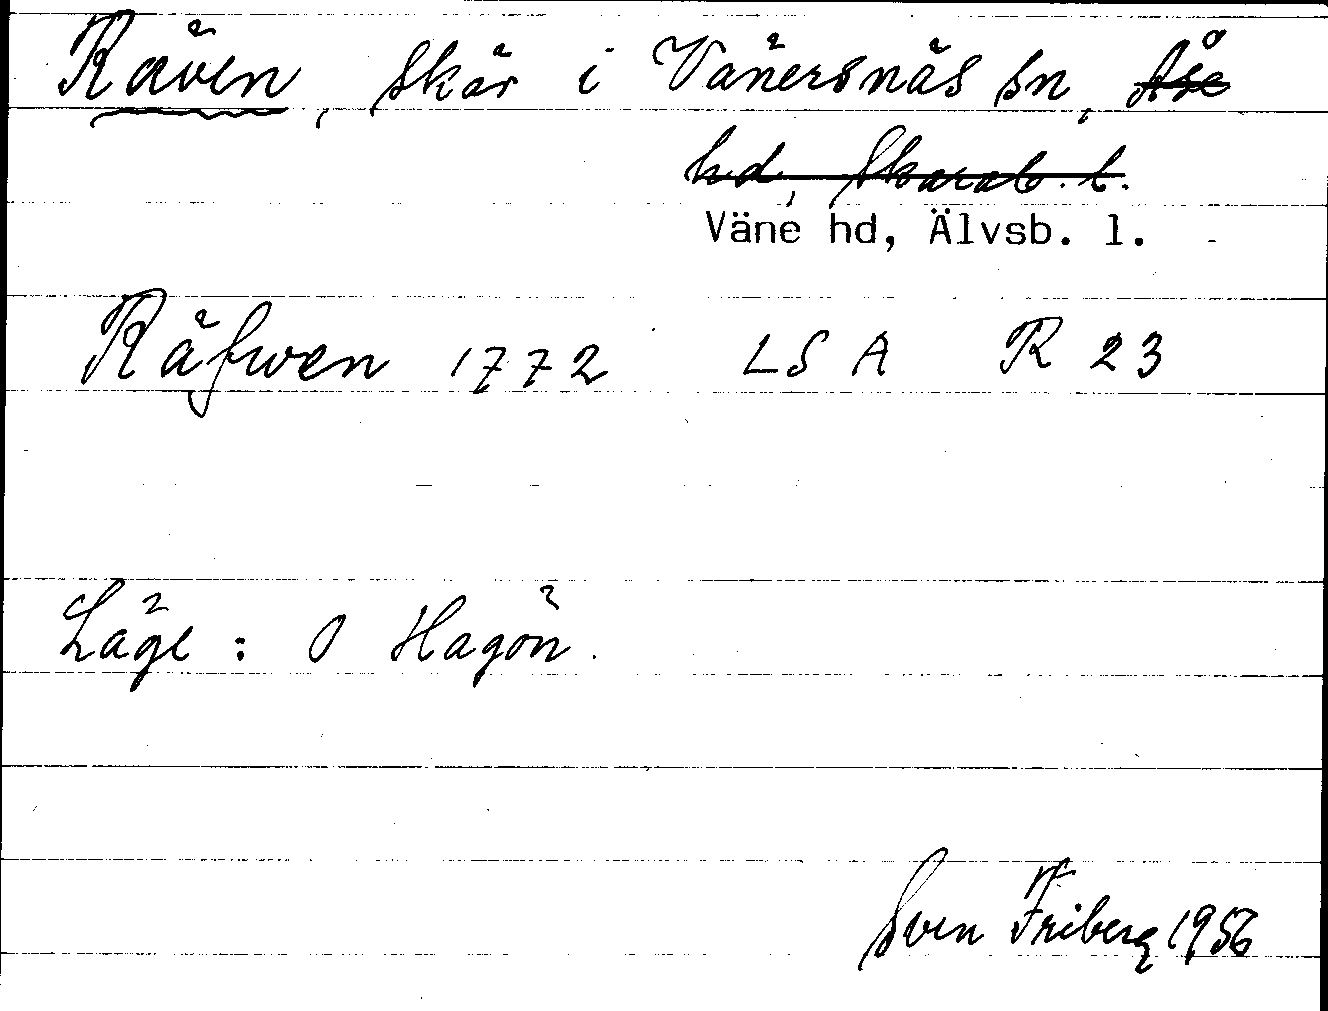 Räven, skär i Vänersnäs sn, Åse
hd, Skarab. l.
Väne hd, Älvsb. l.
Räfwen 1772 LSA R 23
Läge: O Hagön.
Sven Friberg 1956